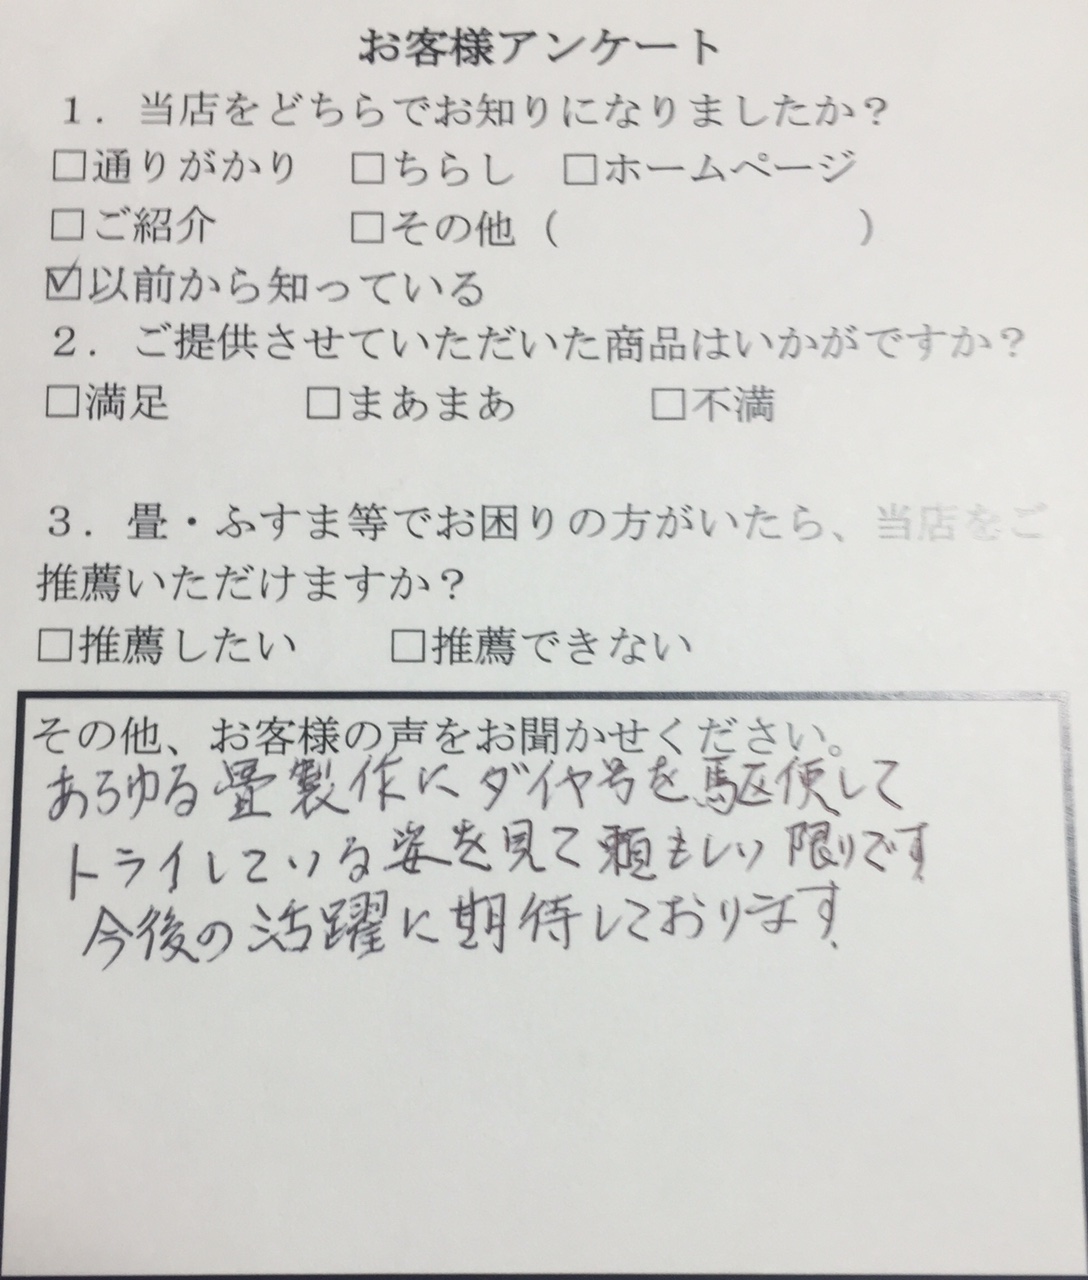 お客様アンケート
１．当店をどちらでお知りになりましたか？
□通りがかり　□ちらし　□ホームページ
□ご紹介　　　□その他（　　　　　　　）
☑以前から知っている
２．ご提供させていただいた商品はいかがですか？
□満足　　　□まあまあ　　　□不満
３．畳・ふすま等でお困りの方がいたら、当店をご
推薦いただけますか？
□推薦したい　　□推薦できない
その他、お客様の声をお聞かせください。
あらゆる畳製作にダイヤ号を駆使して
トライしている姿を見て頼もしい限りです
今後の活躍に期待しております